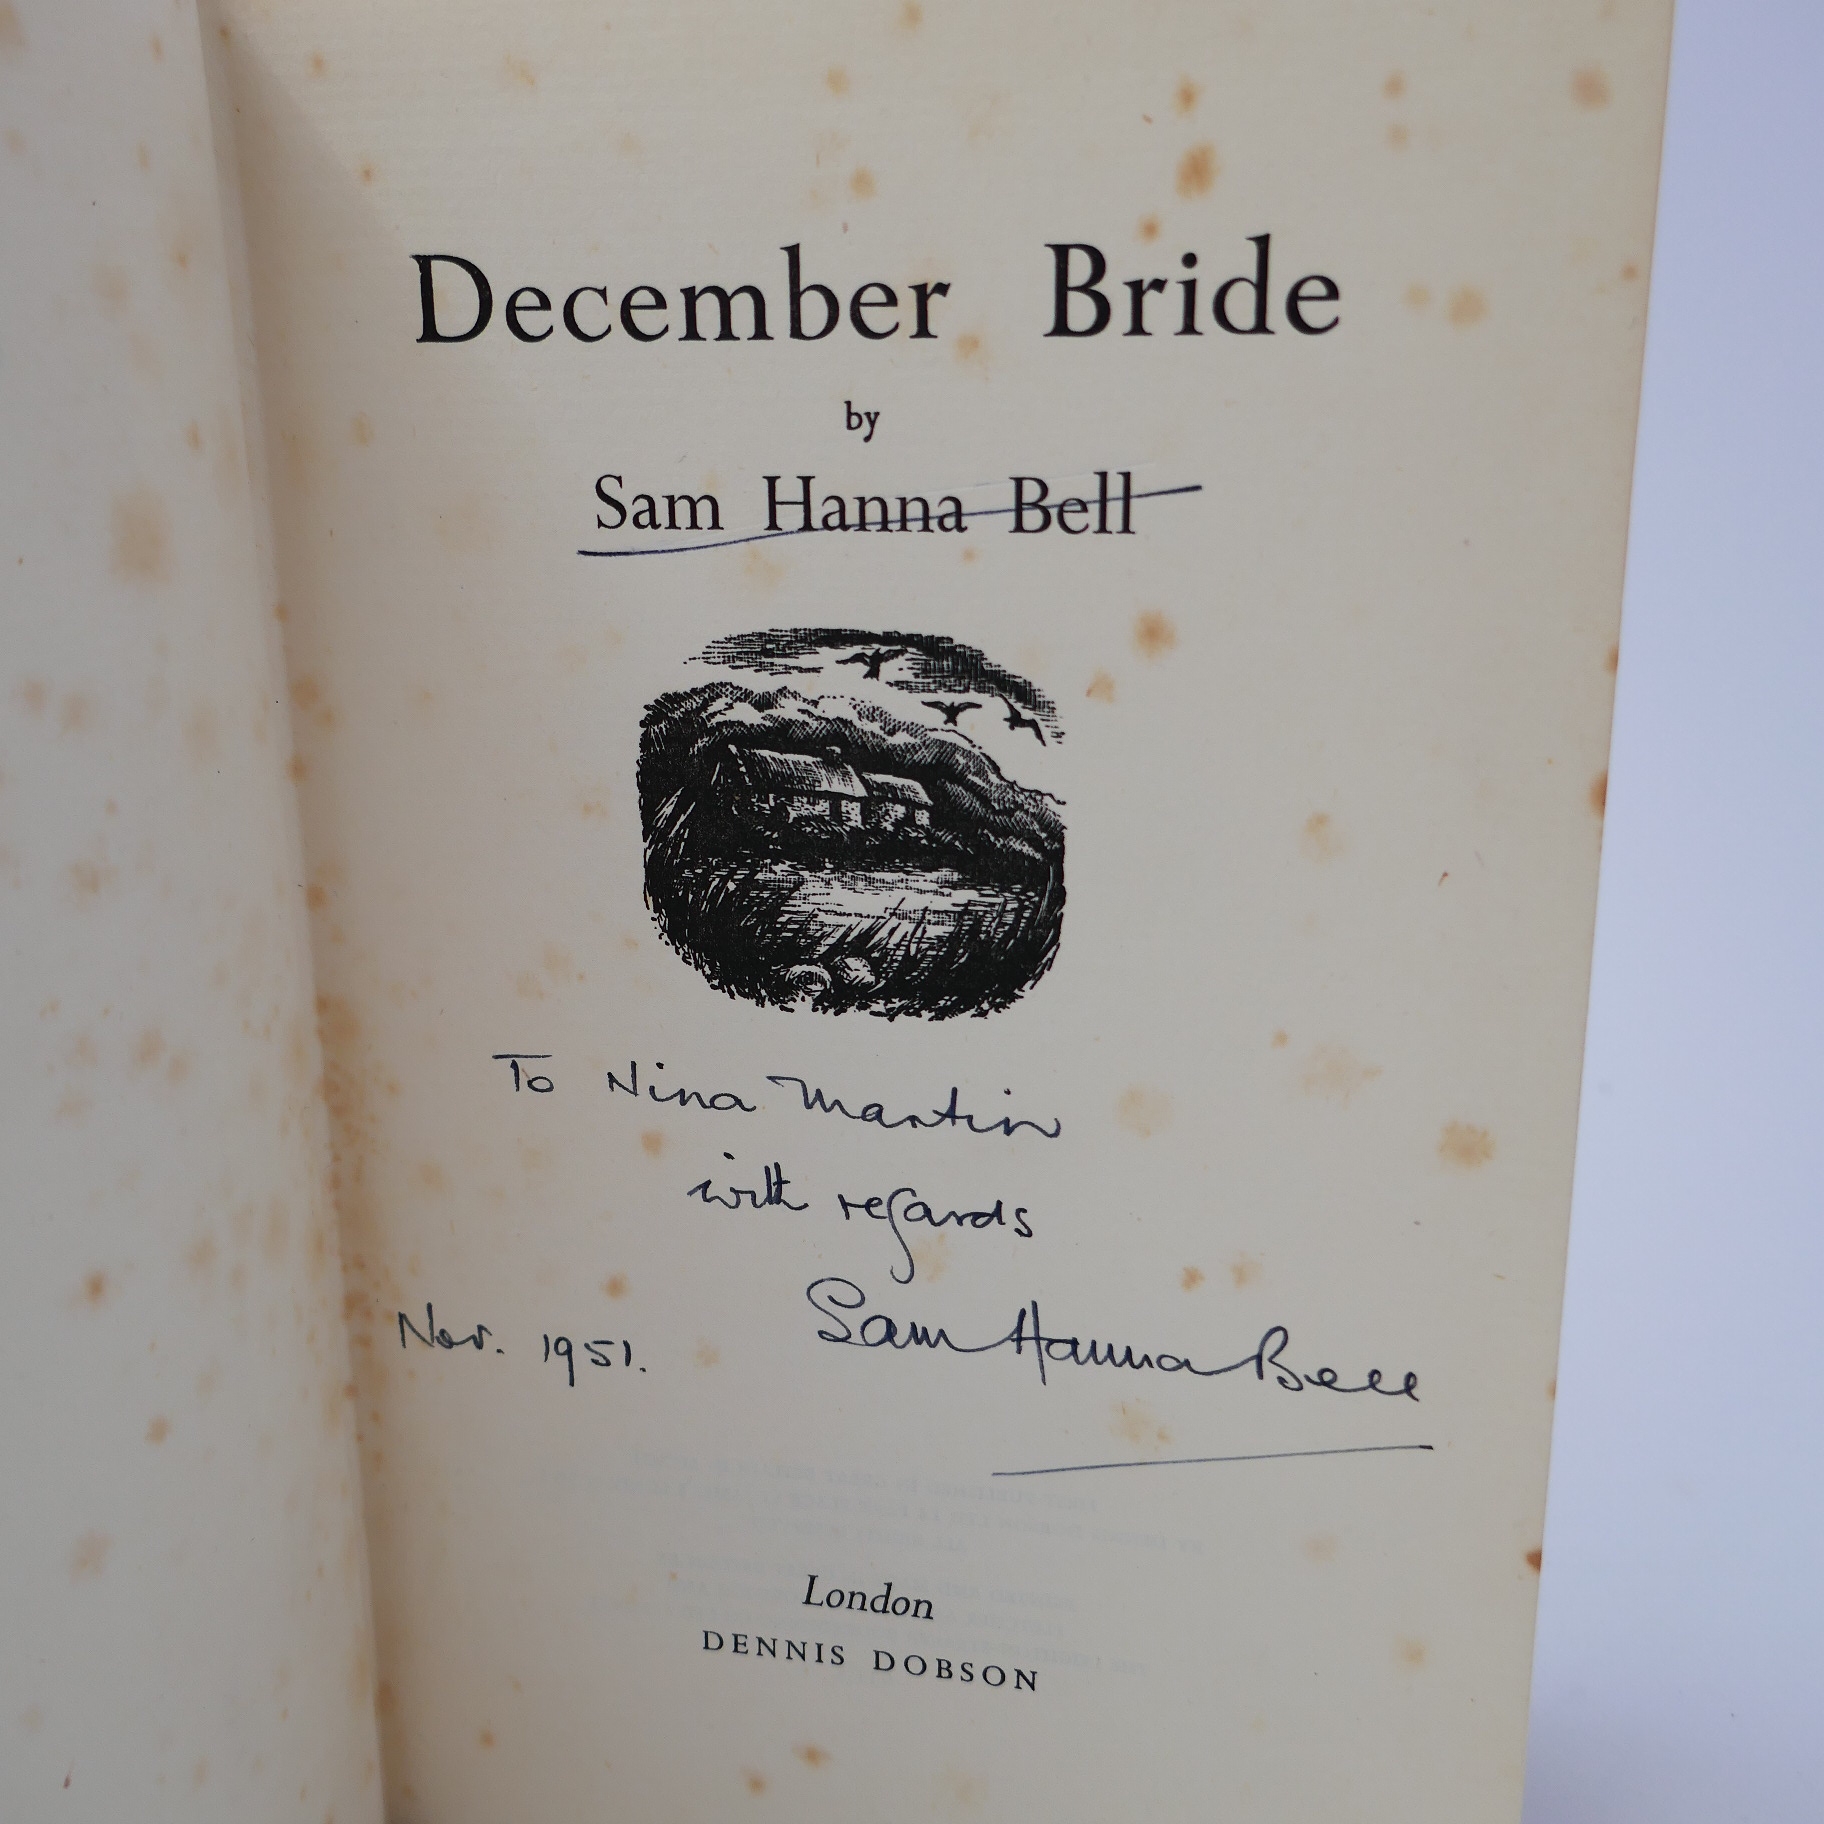 December Bride
by
Sam Hanna Bell
To Nina Martin
with regards
Nov. 1951.
Sam Hanna Bell
London
DENNIS DOBSON